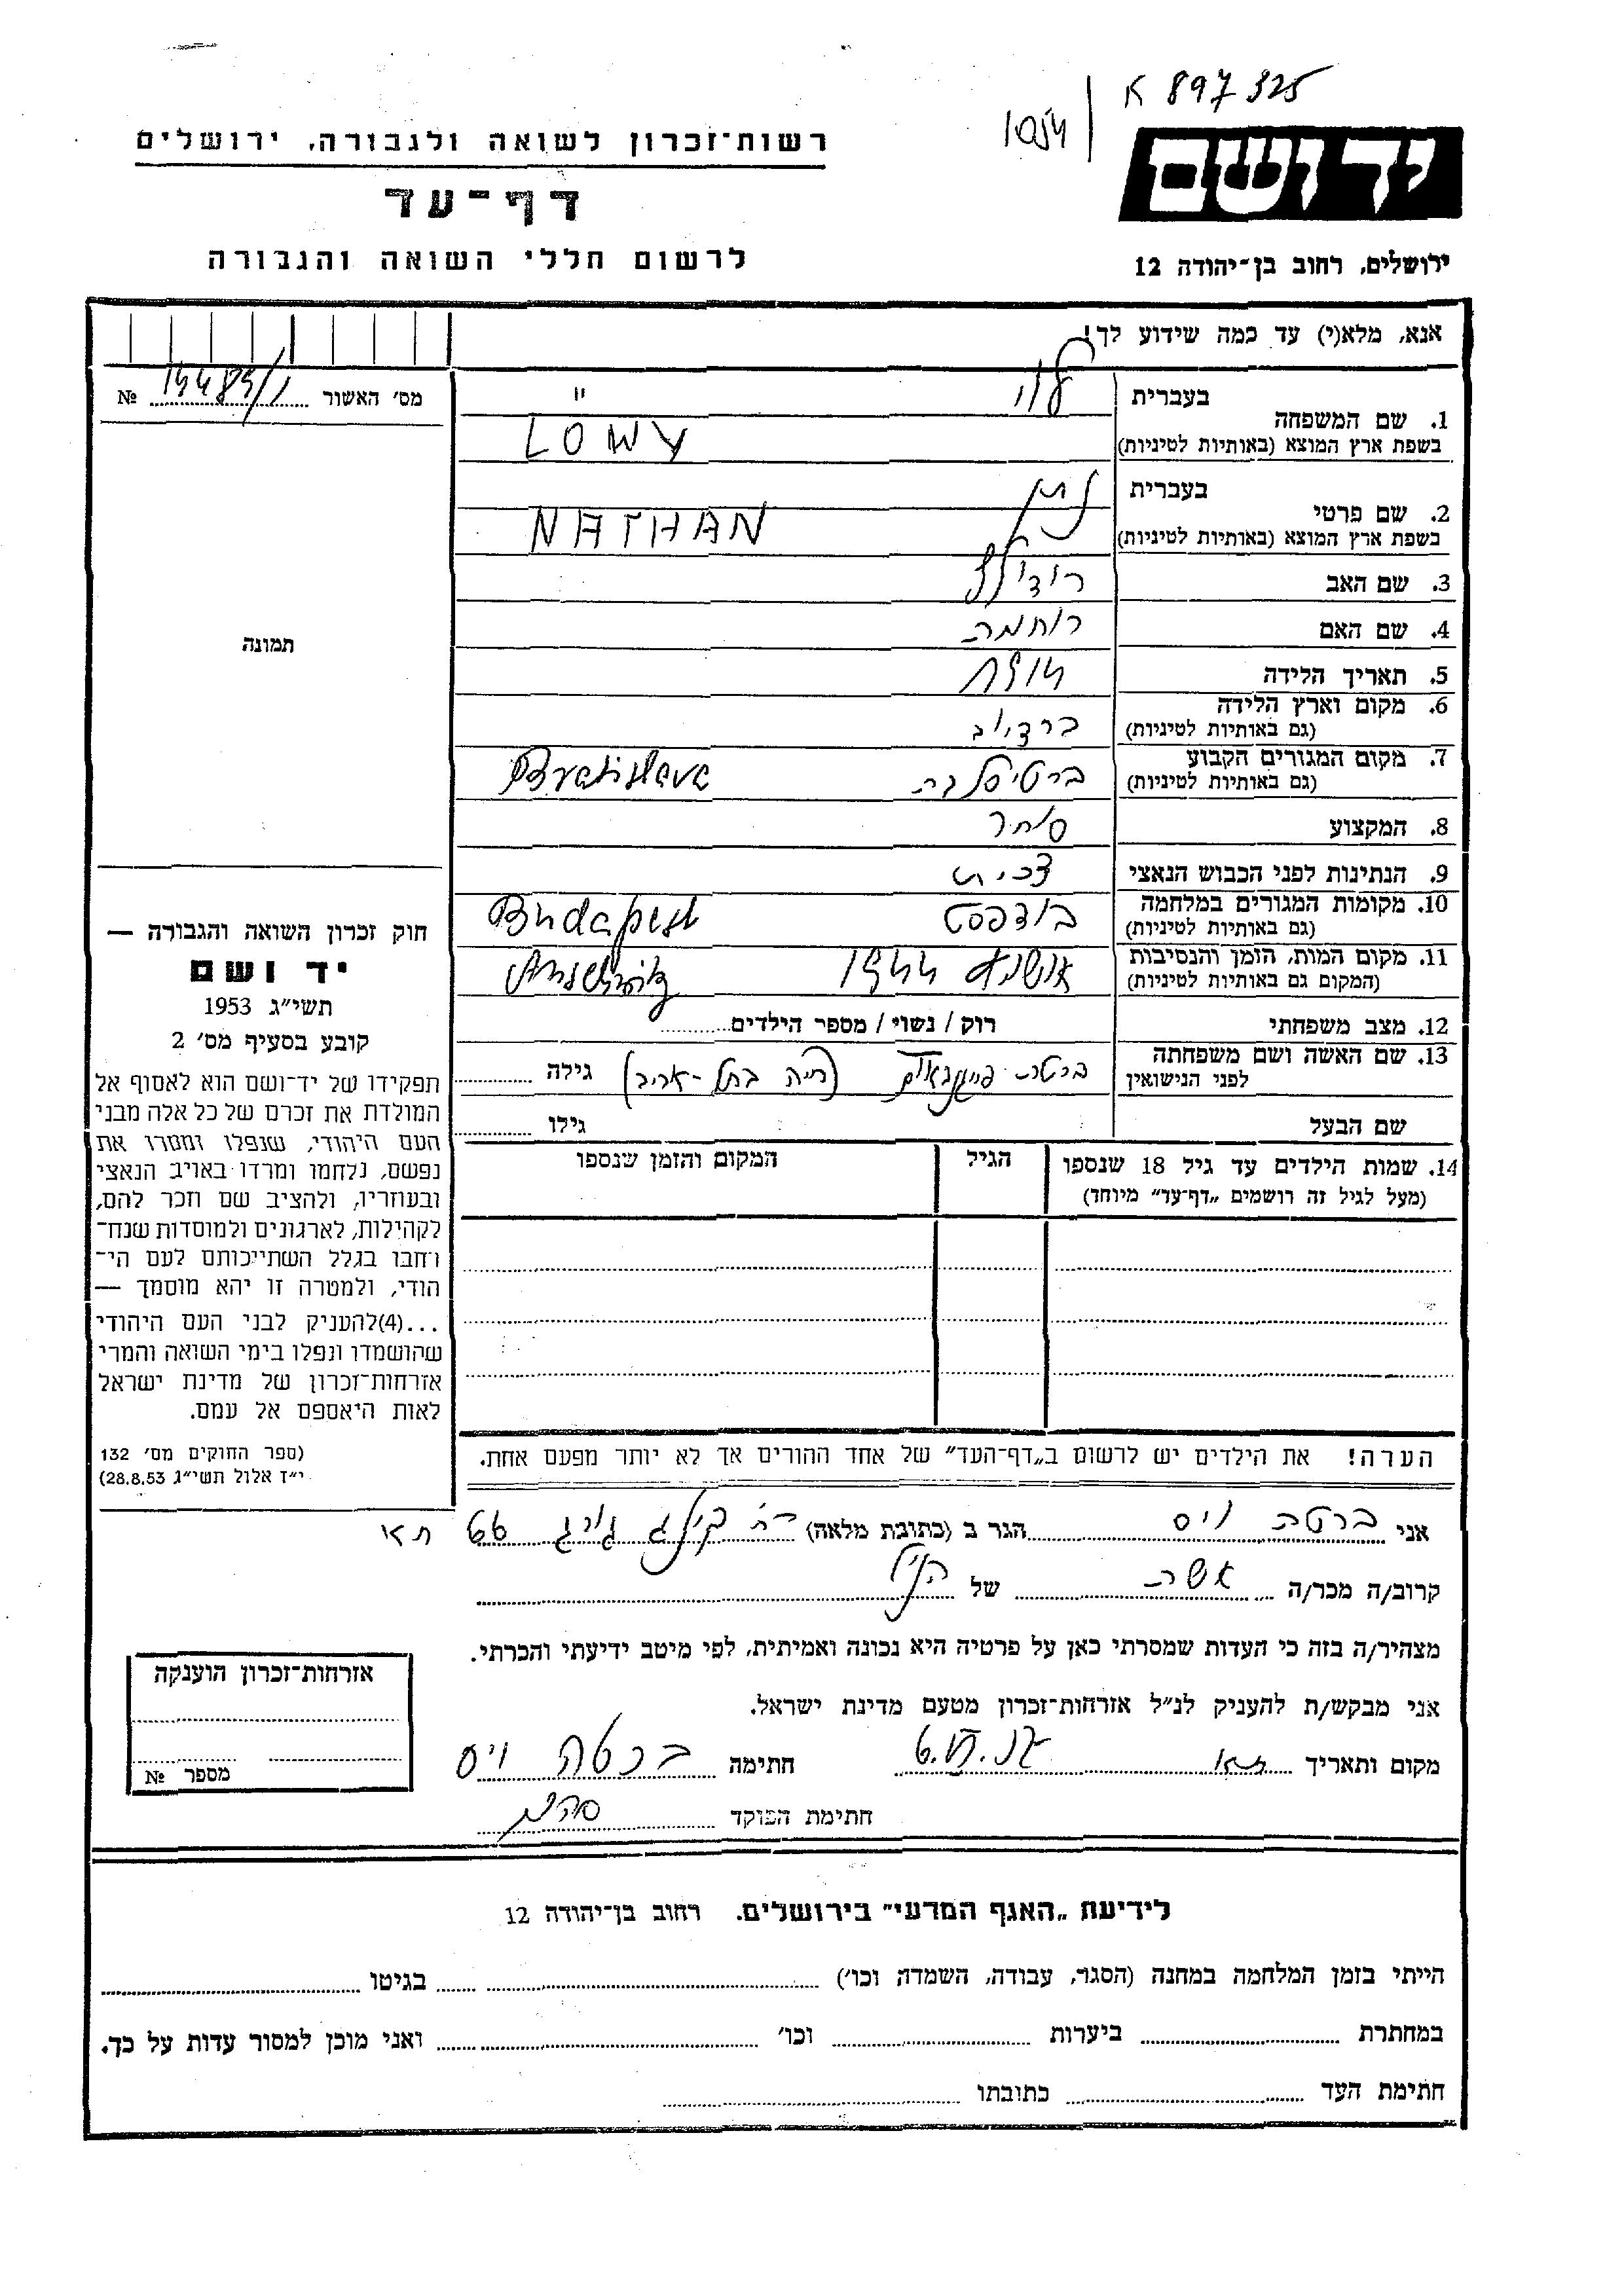 א 897325
1054
רשות־זכרון לשואה ולגבורה, ירושלים
יד ושם
דף־עד
לרשום חללי השואה והגבורה
ירושלים, רחוב בן־יהודה 12
אנא, מלא(י) עד כמה שידוע לך!
מס׳ האשור №
1. שם המשפחה בעברית לוי
בשפת ארץ המוצא (באותיות לטיניות) LÖWY
2. שם פרטי בעברית נתן
בשפת ארץ המוצא (באותיות לטיניות) NATHAN
3. שם האב רודולף
4. שם האם רוחמה
5. תאריך הלידה
6. מקום וארץ הלידה ברדיוב
(גם באותיות לטיניות)
7. מקום המגורים הקבוע ברטיסלבה Bratislava
(גם באותיות לטיניות)
8. המקצוע סוחר
9. הנתינות לפני הכבוש הנאצי צכית
10. מקומות המגורים במלחמה בודפסט Budapest
(גם באותיות לטיניות)
11. מקום המות, הזמן והנסיבות 1944
(המקום גם באותיות לטיניות)
12. מצב משפחתי רוק / נשוי / מספר הילדים
13. שם האשה ושם משפחתה ברטה (חיה בתל-אביב) גילה
לפני הנישואין
שם הבעל גילו
14. שמות הילדים עד גיל 18 שנספו הגיל המקום והזמן שנספו
(מעל לגיל זה רושמים „דף־עד” מיוחד)
הערה! את הילדים יש לרשום ב„דף־העד” של אחד ההורים אך לא יותר מפעם אחת.
תמונה
חוק זכרון השואה והגבורה —
יד ושם
תשי״ג 1953
קובע בסעיף מס׳ 2
תפקידו של יד־ושם הוא לאסוף אל
המולדת את זכרם של כל אלה מבני
העם היהודי, שנפלו ומסרו את
נפשם, נלחמו ומרדו באויב הנאצי
ובעוזריו, ולהציב שם וזכר להם,
לקהילות, לארגונים ולמוסדות שנח־
רחבו בגלל השתייכותם לעם הי־
הודי, ולמטרה זו יהא מוסמך —
...(4)להעניק לבני העם היהודי
שהושמדו ונפלו בימי השואה והמרי
אזרחות־זכרון של מדינת ישראל
לאות היאספם אל עמם.
(ספר החוקים מס׳ 132
י״ז אלול תשי״ג 28.8.53)
אני ברטה ויס הגר ב (כתובת מלאה) רח׳ קינג גורג 66 תא
קרוב/ה מכר/ה אשה של הנ״ל
מצהיר/ה בזה כי העדות שמסרתי כאן על פרטיה היא נכונה ואמיתית, לפי מיטב ידיעתי והכרתי.
אני מבקש/ת להעניק לנ״ל אזרחות־זכרון מטעם מדינת ישראל.
מקום ותאריך תא חתימה ברטה ויס
חתימת הפוקד
אזרחות־זכרון הוענקה
מספר №
לידיעת „האגף המדעי” בירושלים, רחוב בן־יהודה 12
הייתי בזמן המלחמה במחנה (הסגר, עבודה, השמדה וכו׳) בגיטו
במחתרת ביערות וכו׳ ואני מוכן למסור עדות על כך.
חתימת העד כתובתו